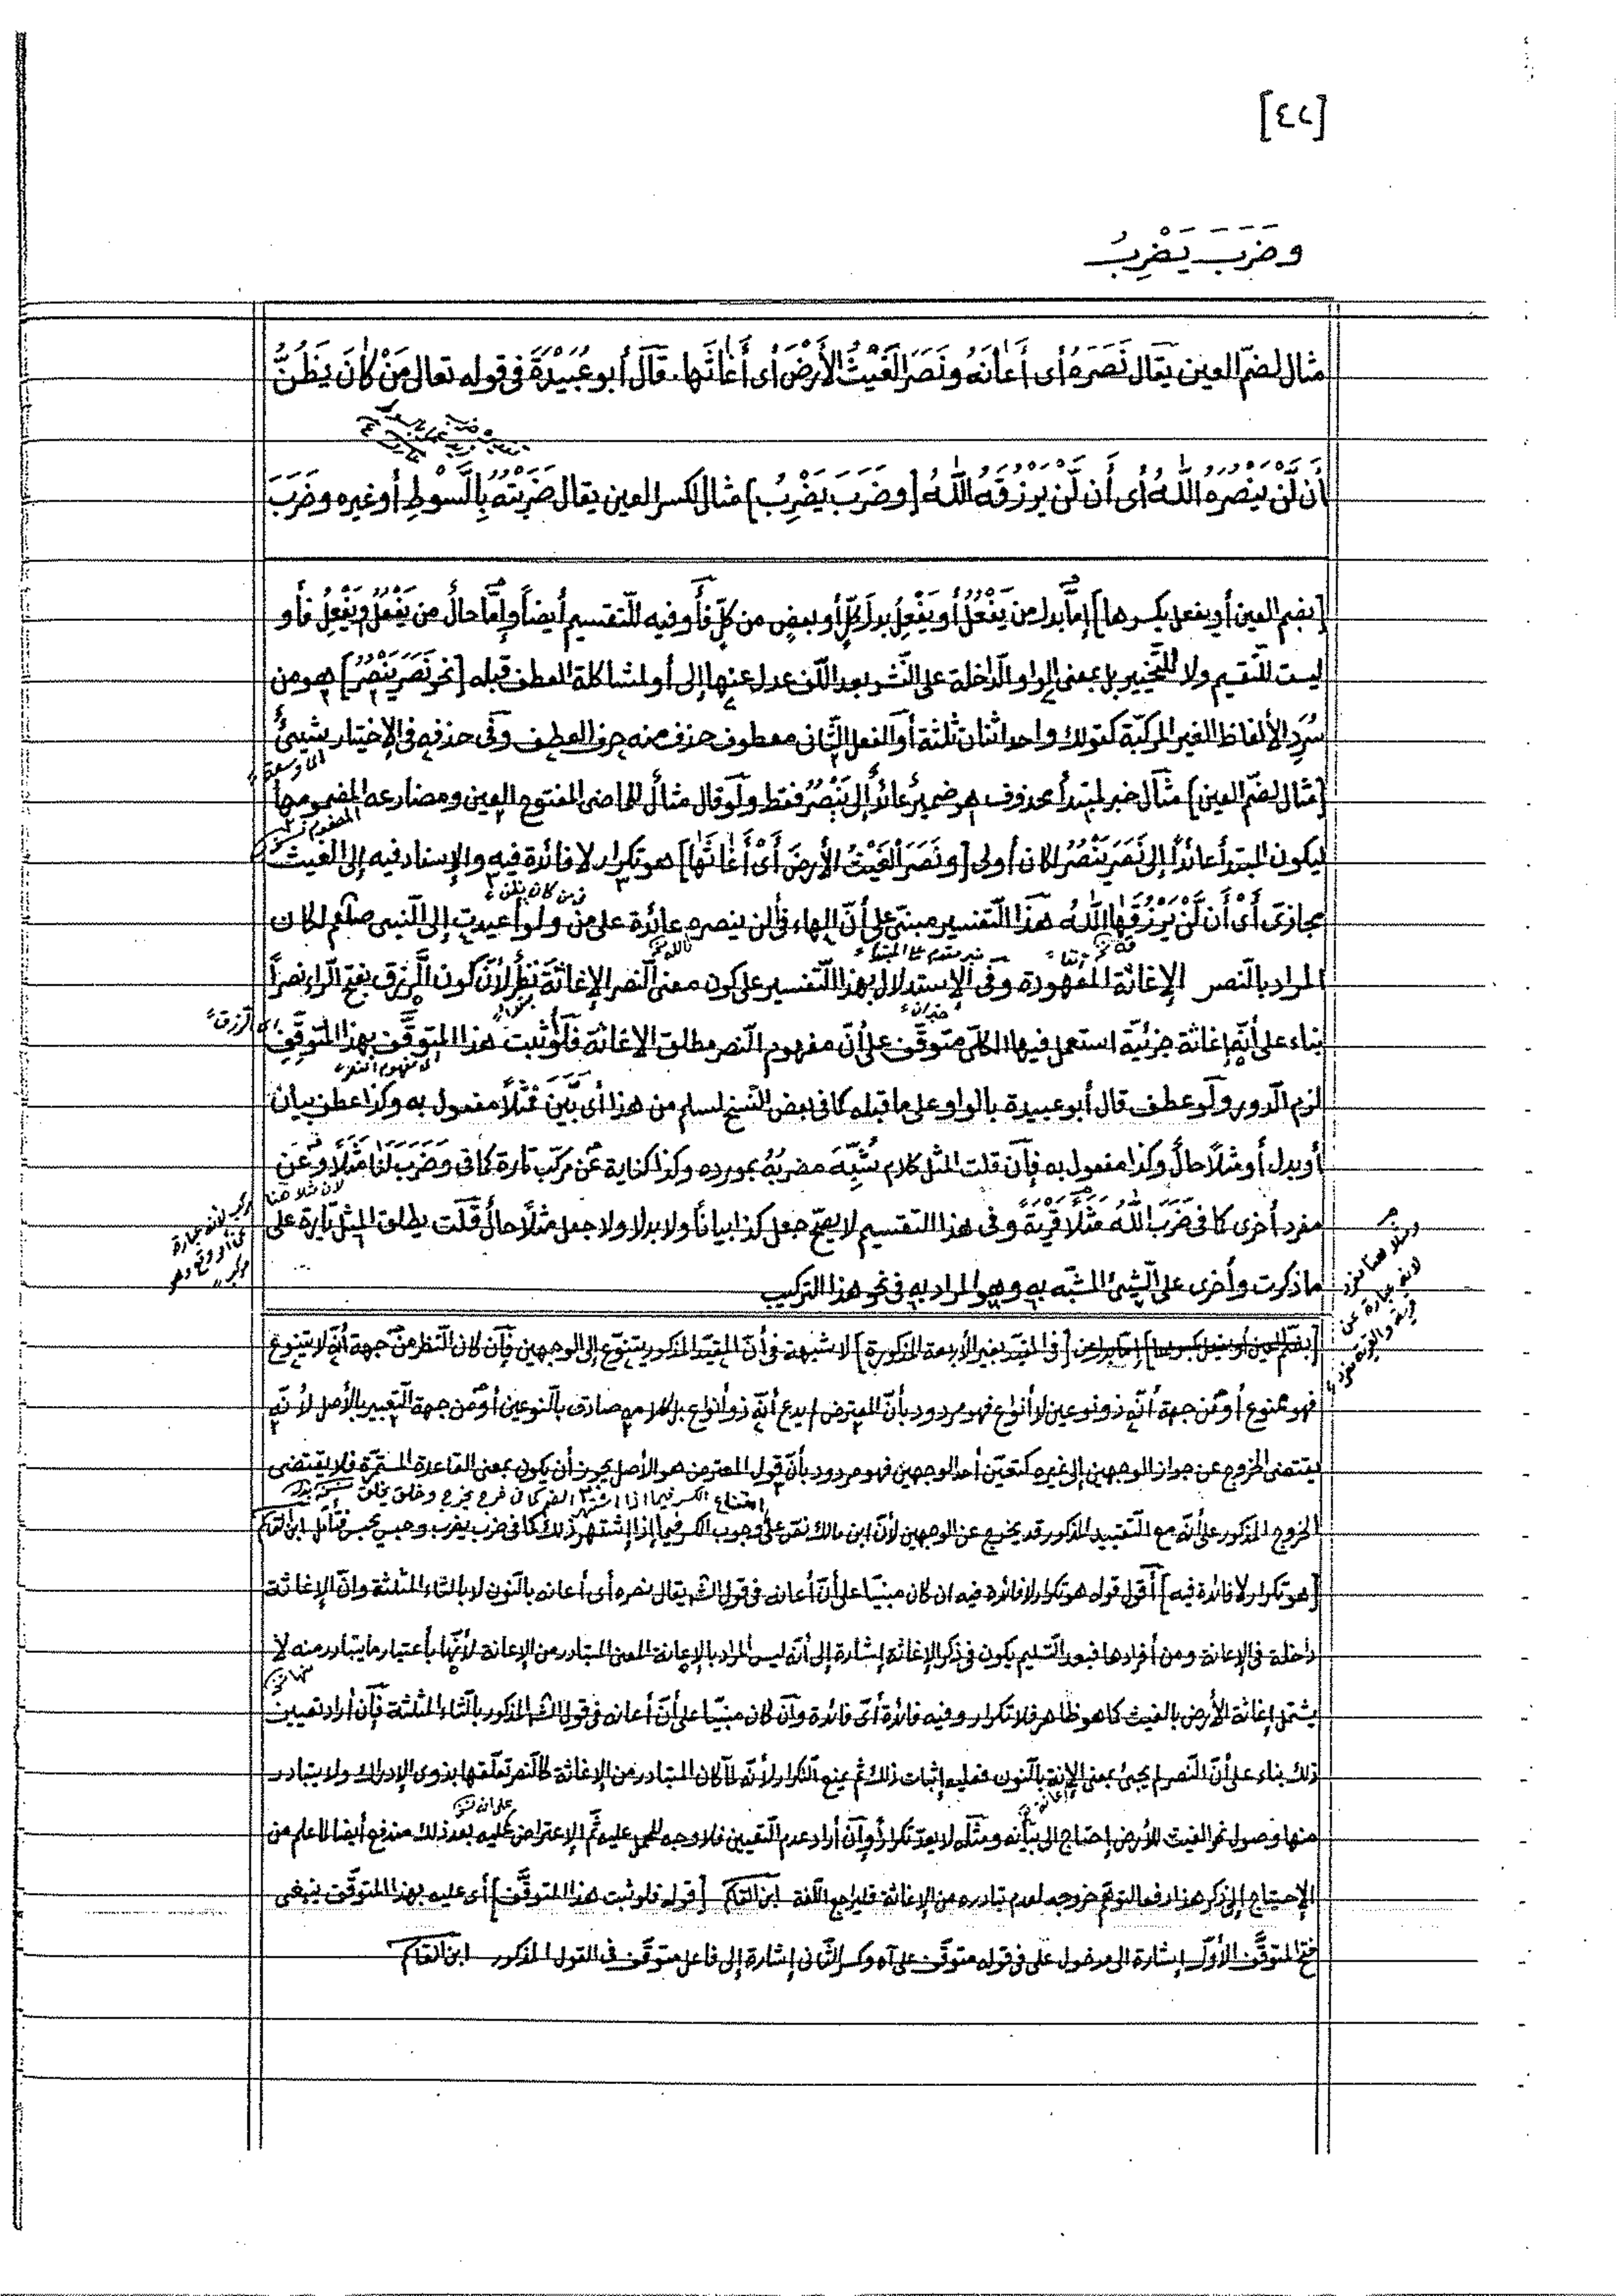 [٤٢]
وضَرَبَ يَضْرِبُ
مثال لضمّ العين يقال نَصَرَهُ أى أَعَانَهُ ونَصَرَ الغَيْثُ الأَرْضَ أى أَغَاثَها. قال أبو عُبَيْدَةَ فى قوله تعالى مَنْ كَانَ يَظُنُّ
أَن لَّنْ يَنْصُرَهُ اللّٰهُ أى أَن لَّنْ يَرْزُقَهُ اللّٰهُ [وضَرَبَ يَضْرِبُ] مثال لكسر العين يقال ضَرَبْتُهُ بِالسَّوْطِ أو غيره وضَرَبَ
[بضم العين أو يفعل بكسرها] إمّا بدل من يَفْعُلُ أو يَفْعِلُ بدلَ كلٍّ أو بعضٍ من كلٍّ فأو فيه للتّقسيم أيضاً وإمّا حالٌ من يَفْعُلُ ويَفْعِلُ فأو
ليست للتقسيم ولا للتّخيير بل بمعنى الواو الدّاخلة على النّشر بعد اللّف عدل عنها إلى أو لمشاكلة العطف قبله [نحو نَصَرَ يَنْصُرُ] هو من
سُرَدِ الألفاظ الغير المركّبة كقولك واحد اثنان ثلثة أو الفعل الثّانى معطوف حذف منه حرف العطف وفى حذفه فى الإختيار شيئٌ
[مثال لضمّ العين] مثال خبر لمبتدأ محذوف هو ضميرٌ عائدٌ إلى يَنْصُرُ فقط ولو قال مثالٌ للماضى المفتوح العين ومضارعه المضمومها
ليكون المبتدأ عائداً إلى نَصَرَ يَنْصُرُ لكان أولى [ونَصَرَ الغَيْثُ الأرضَ أَىْ أَغَاثَها] هو تكرار لا فائدة فيه والإسناد فيه إلى الغيث
مجازىّ أَىْ أَن لَّنْ يَرْزُقَها اللّٰهُ هذا التّفسير مبنىّ على أنّ الهاء فى لن ينصره عائدة على مَن ولو أعيدت إلى النّبى صلعم لكان
المراد بالنّصر الإغاثة المعهودة وفى الإستدلال بهذا التّفسير على كون معنى النّصر الإغاثة نظرٌ لأنّ كون الرّزق بفتح الرّاء نصراً
بناء على أنّه إغاثة جزئيّة استعمل فيها الكلّى متوقّف على أنّ مفهوم النّصر مطلق الإغاثة فلو ثبت هذا المتوقَّف بهذا المتوقِّف
لزم الدّور ولو عطف قال أبو عبيدة بالواو على ما قبله كما فى بعض النّسخ لسلم من هذا أى بَيَّنَ مَثَلاً مفعول به وكذا عطف بيان
أو بدل أو مثلاً حالٌ وكذا مفعول به فإن قلت المثل كلام شُبِّهَ مضربُهُ بمورده وكذا كناية عن مركّب تارة كما فى وضَرَبَ لَنَا مَثَلاً وعن
مفرد أخرى كما فى ضَرَبَ اللّٰهُ مَثَلاً قَرْيَةً وفى هذا التقسيم لا يصحّ جعل كذا بياناً ولا بدلا ولا جعل مثلاً حالٌ قلت يطلق المثل تارة على
ما ذكرت وأخرى على الشّيئ المشبّه به وهو المراد به فى نحو هذا التركيب
[فى المقيّد بغير الأربعة المذكورة] لا شبهة فى أنّ المقيّد المذكور يتنوّع إلى الوجهين فإن كان النّظر من جهة أنّه لا يتنوع
فهو ممنوع أو من جهة أنّه ذو نوعين لا أنواع فهو مردود بأنّ المعترض لم يدع أنّه ذو أنواع بل كلامه صادق بالنّوعين أو من جهة التّعبير بالأصل لأنّه
يقتضى الخروج عن جواز الوجهين إلى غيره كتعيّن أحد الوجهين فهو مردود بأنّ قول المعترض هو الأصل يجوز أن يكون بمعنى القاعدة المستمرّة فلا يقتضى
الخروج المذكور على أنّه مع التّقييد المذكور قد يخرج عن الوجهين لأنّ ابن مالك نصّ على وجوب الكسر فيما إذا إشتهر ذلك كما فى ضرب يضرب وحبس يحبس فتأمّل ابن القاسم
[هو تكرار لا فائدة فيه] أقول قوله هو تكرار لا فائدة فيه ان كان مبنيّا على أنّ أعانه فى قول الشّ يقال نصره أى أعانه بالنّون لا بالثاء المثلثة وانّ الإغاثة
داخلة فى الإعانة ومن أفرادها فبعد التّسليم يكون فى ذكر الإغاثة إشارة إلى أنّه ليس المراد بالإعانة المعنى المتبادر من الإعانة لأنّها بأعتبار ما يتبادر منه لا
يشتمل إغاثة الأرض بالغيث كما هو ظاهر فلا تكرار وفيه فائدة أىّ فائدة وإن كان مبنيّا على أنّ أعانه فى قول الشّ المذكور بالثّاء المثلثة فإن أراد تعيين
ذلك بناء على أنّ النّصر لم يجئ بمعنى الإعانة بالنون فعليه إثبات ذلك ثم يمنع التّكرار لأنّه لمّا كان المتبادر من الإغاثة كالنّصر تعلّقها بذوى الإدراك ولا يتبادر
منها وصول نحو الغيث للأرض إحتاج الى بيانه ومثله لا يعدّ تكراراً وإن أراد عدم التّعيين فلا وجه للحمل عليه ثمّ الإعتراض عليه بعد ذلك مندفع أيضا لما علم من
الإحتياج إلى ذكر هذا دفعا لتوهّم خروجه لعدم تبادره من الإغاثة فليراجع اللّغة ابن القاسم [قوله فلو ثبت هذا المتوقَّف] أى عليه بهذا المتوقّف ينبغى
فتح المتوقَّف الأوّل إشارة الى مدخول على فى قوله متوقّف على آه وكسر الثّانى إشارة إلى فاعل متوقّف فى القول المذكور ابن القاسم